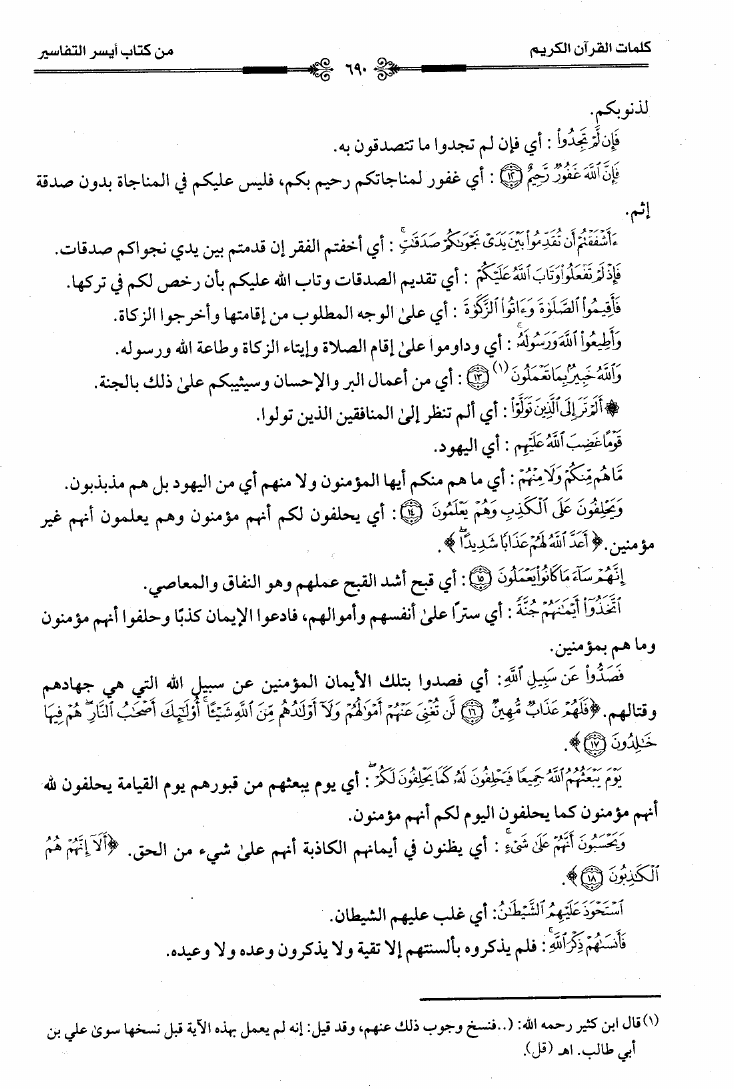 كلمات القرآن الكريم
٦٩٠
من كتاب أيسر التفاسير
لذنوبكم.
فَإِن لَّمْ تَجِدُوا۟ : أي فإن لم تجدوا ما تتصدقون به.
فَإِنَّ ٱللَّهَ غَفُورٌ رَّحِيمٌ ١٢ : أي غفور لمناجاتكم رحيم بكم، فليس عليكم في المناجاة بدون صدقة
إثم.
ءَأَشْفَقْتُمْ أَن تُقَدِّمُوا۟ بَيْنَ يَدَىْ نَجْوَىٰكُمْ صَدَقَٰتٍ ۚ : أي أخفتم الفقر إن قدمتم بين يدي نجواكم صدقات.
فَإِذْ لَمْ تَفْعَلُوا۟ وَتَابَ ٱللَّهُ عَلَيْكُمْ : أي تقديم الصدقات وتاب الله عليكم بأن رخص لكم في تركها.
فَأَقِيمُوا۟ ٱلصَّلَوٰةَ وَءَاتُوا۟ ٱلزَّكَوٰةَ : أي علىٰ الوجه المطلوب من إقامتها وأخرجوا الزكاة.
وَأَطِيعُوا۟ ٱللَّهَ وَرَسُولَهُۥ ۚ : أي وداوموا علىٰ إقام الصلاة وإيتاء الزكاة وطاعة الله ورسوله.
وَٱللَّهُ خَبِيرٌۢ بِمَا تَعْمَلُونَ (١) ١٣ : أي من أعمال البر والإحسان وسيثيبكم علىٰ ذلك بالجنة.
۞ أَلَمْ تَرَ إِلَى ٱلَّذِينَ تَوَلَّوْا۟ : أي ألم تنظر إلىٰ المنافقين الذين تولوا.
قَوْمًا غَضِبَ ٱللَّهُ عَلَيْهِم : أي اليهود.
مَّا هُم مِّنكُمْ وَلَا مِنْهُمْ : أي ما هم منكم أيها المؤمنون ولا منهم أي من اليهود بل هم مذبذبون.
وَيَحْلِفُونَ عَلَى ٱلْكَذِبِ وَهُمْ يَعْلَمُونَ ١٤ : أي يحلفون لكم أنهم مؤمنون وهم يعلمون أنهم غير
مؤمنين. ﴿ أَعَدَّ ٱللَّهُ لَهُمْ عَذَابًا شَدِيدًا ۖ ﴾.
إِنَّهُمْ سَآءَ مَا كَانُوا۟ يَعْمَلُونَ ١٥ : أي قبح أشد القبح عملهم وهو النفاق والمعاصي.
ٱتَّخَذُوٓا۟ أَيْمَٰنَهُمْ جُنَّةً : أي سترًا علىٰ أنفسهم وأموالهم، فادعوا الإيمان كذبًا وحلفوا أنهم مؤمنون
وما هم بمؤمنين.
فَصَدُّوا۟ عَن سَبِيلِ ٱللَّهِ : أي فصدوا بتلك الأيمان المؤمنين عن سبيل الله التي هي جهادهم
وقتالهم. ﴿فَلَهُمْ عَذَابٌ مُّهِينٌ ١٦ لَّن تُغْنِىَ عَنْهُمْ أَمْوَٰلُهُمْ وَلَآ أَوْلَٰدُهُم مِّنَ ٱللَّهِ شَيْـًٔا ۚ أُو۟لَٰٓئِكَ أَصْحَٰبُ ٱلنَّارِ ۖ هُمْ فِيهَا
خَٰلِدُونَ ١٧ ﴾.
يَوْمَ يَبْعَثُهُمُ ٱللَّهُ جَمِيعًا فَيَحْلِفُونَ لَهُۥ كَمَا يَحْلِفُونَ لَكُمْ ۖ : أي يوم يبعثهم من قبورهم يوم القيامة يحلفون لله
أنهم مؤمنون كما يحلفون اليوم لكم أنهم مؤمنون.
وَيَحْسَبُونَ أَنَّهُمْ عَلَىٰ شَىْءٍ ۚ : أي يظنون في أيمانهم الكاذبة أنهم علىٰ شيء من الحق. ﴿أَلَآ إِنَّهُمْ هُمُ
ٱلْكَٰذِبُونَ ١٨ ﴾.
ٱسْتَحْوَذَ عَلَيْهِمُ ٱلشَّيْطَٰنُ : أي غلب عليهم الشيطان.
فَأَنسَىٰهُمْ ذِكْرَ ٱللَّهِ ۚ : فلم يذكروه بألسنتهم إلا تقية ولا يذكرون وعده ولا وعيده.
(١) قال ابن كثير رحمه الله: (..فنسخ وجوب ذلك عنهم، وقد قيل: إنه لم يعمل بهذه الآية قبل نسخها سوىٰ علي بن
أبي طالب. اهـ (قل).